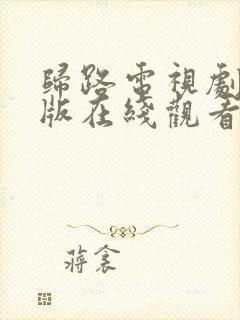 歸路電視劇
版在綫觀看
蔣衾